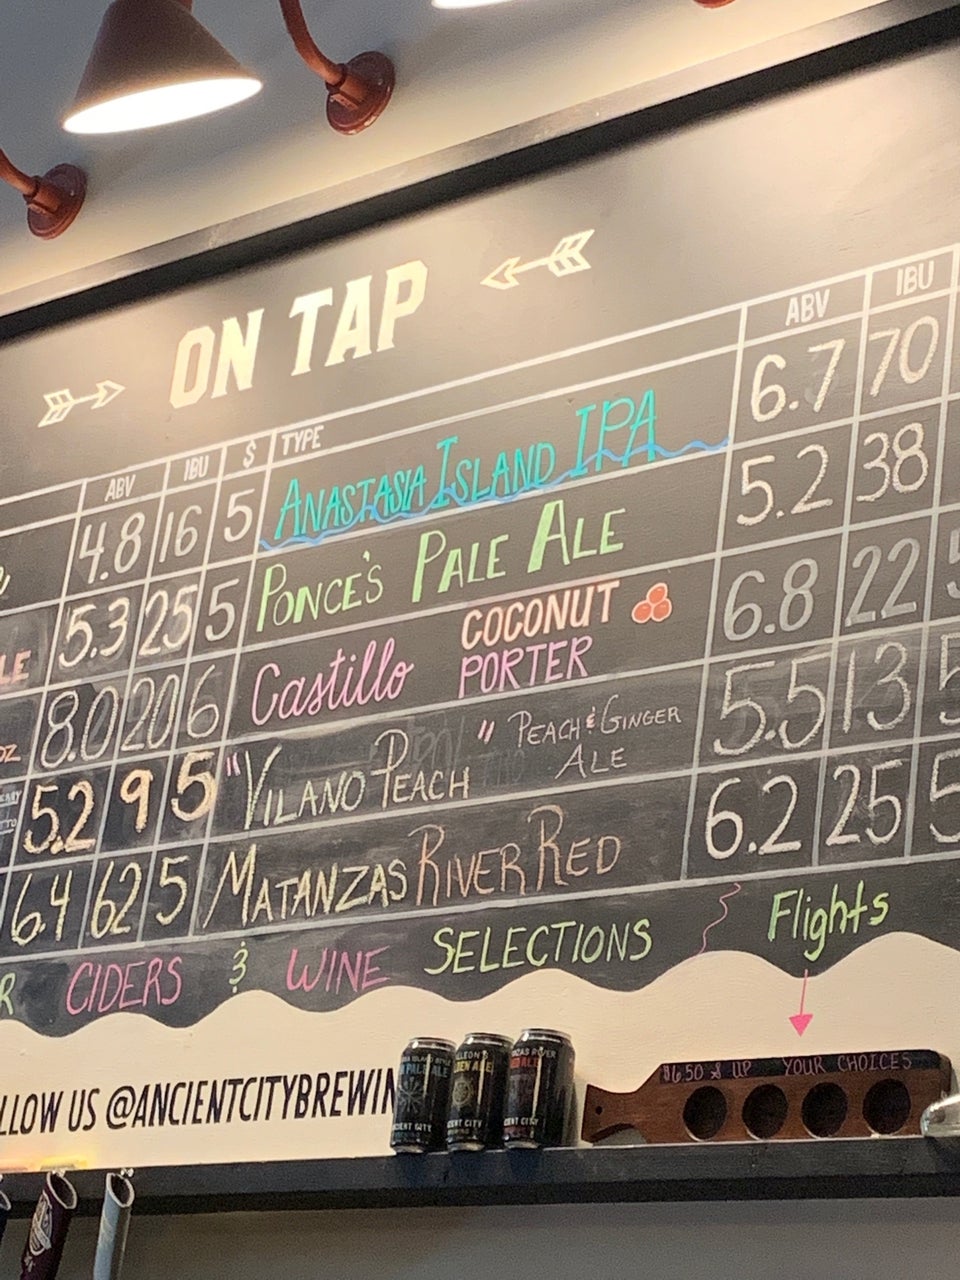 ON TAP
ABV IBU $ TYPE ABV IBU
4.8 16 5 ANASTASIA ISLAND IPA 6.7 70
5.3 25 5 PONCE'S PALE ALE 5.2 38
8.0 20 6 Castillo COCONUT PORTER 6.8 22 5
5.2 9 5 "VILANO PEACH" PEACH & GINGER ALE 5.5 13 5
6.4 62 5 MATANZAS RIVER RED 6.2 25 5
R CIDERS & WINE SELECTIONS
Flights
$6.50 & UP YOUR CHOICES
LLOW US @ANCIENTCITYBREWIN